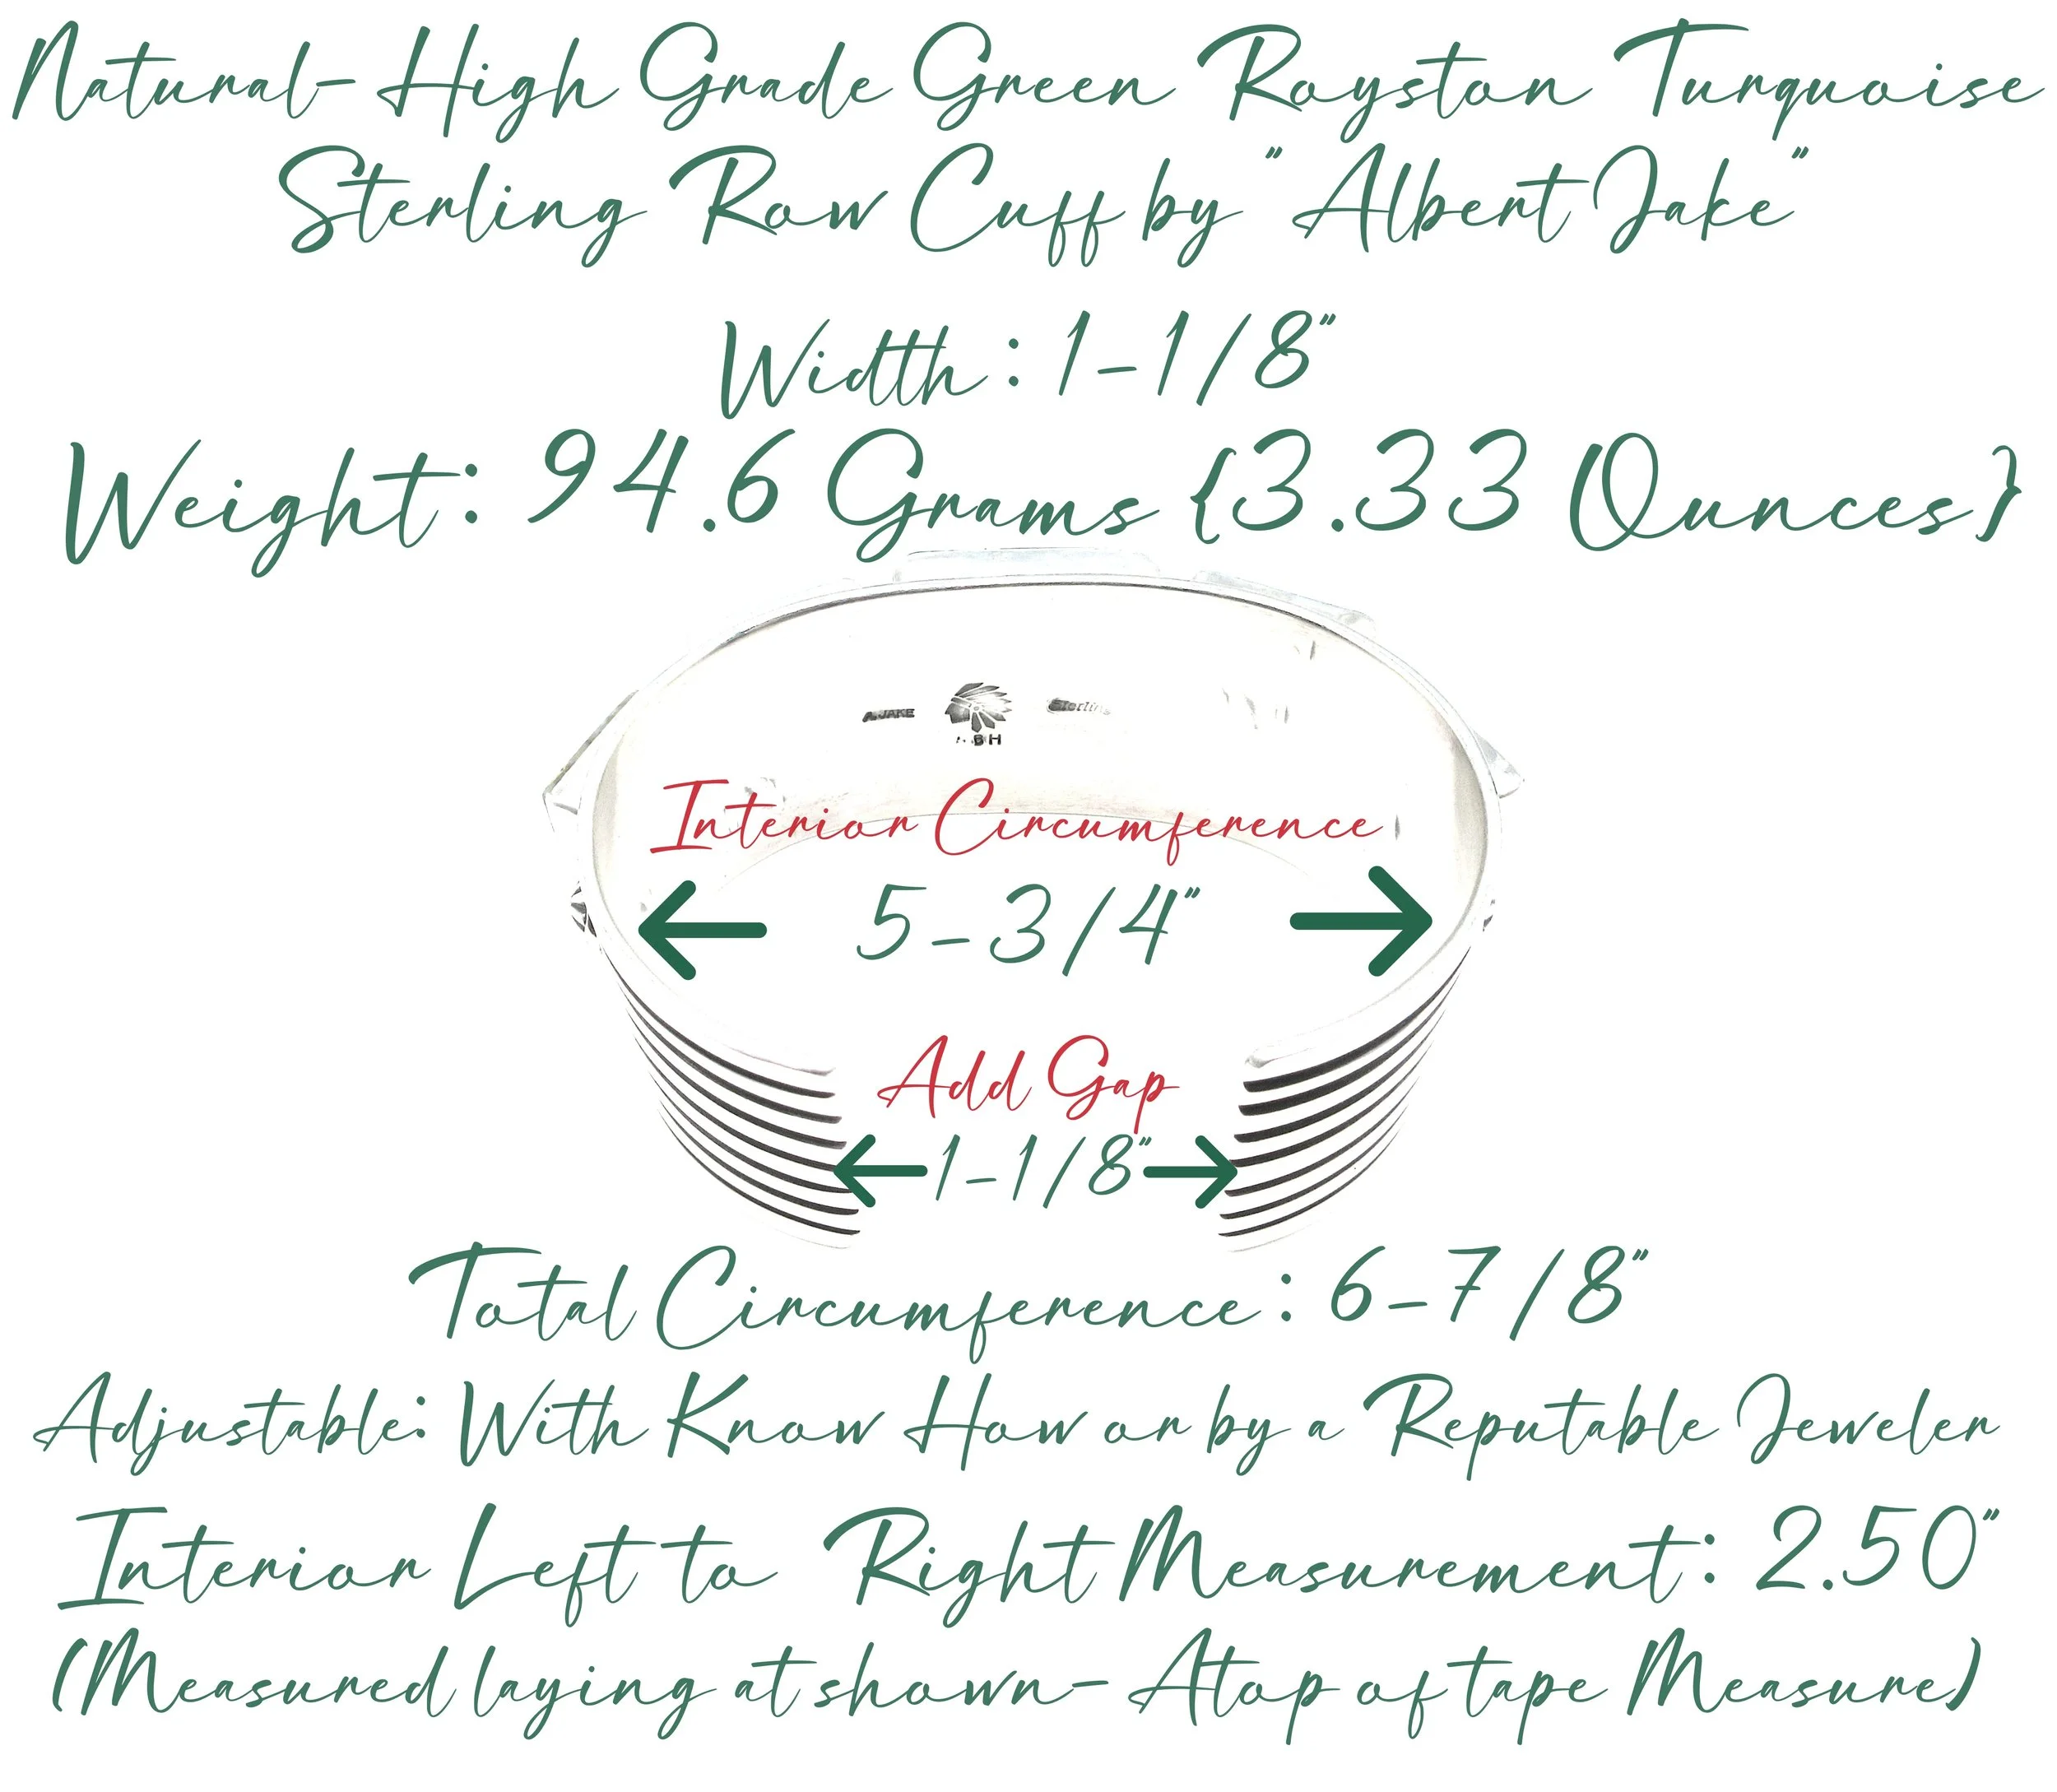 Natural- High Grade Green Royston Turquoise
Sterling Row Cuff by "Albert Jake"
Width: 1-1/8"
Weight: 94.6 Grams {3.33 Ounces}
A. JAKE
Sterling
Interior Circumference
5-3/4"
Add Gap
1-1/8"
Total Circumference: 6-7/8"
Adjustable: With Know How or by a Reputable Jeweler
Interior Left to Right Measurement: 2.50"
(Measured laying at shown- Atop of tape Measure)